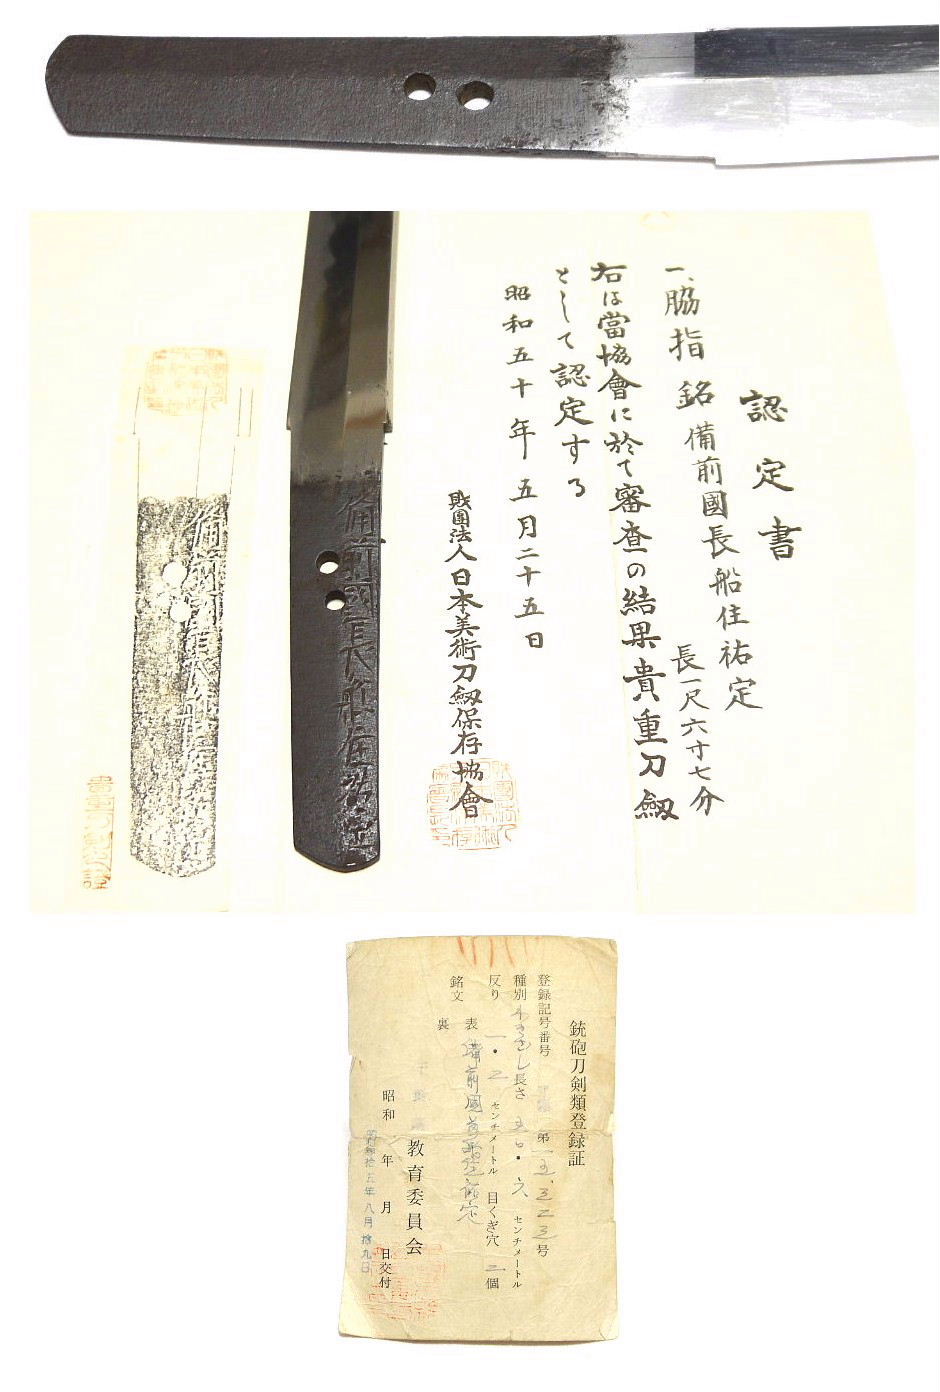 認定書
一、脇指 銘 備前國長船住祐定
長一尺六寸七分
右は當協會に於て審査の結果貴重刀劔
として認定する
昭和五十年五月二十五日
財團法人日本美術刀劔保存協會
備前國長船住祐定
銃砲刀剣類登録証
登録記号番号 第 号
種別 わきざし 長さ 五〇・六 センチメートル
反り 一・二 センチメートル 目くぎ穴 二 個
銘文 表 備前國長船住祐定
裏
教育委員会
昭和 年 月 日交付
五年八月拾九日